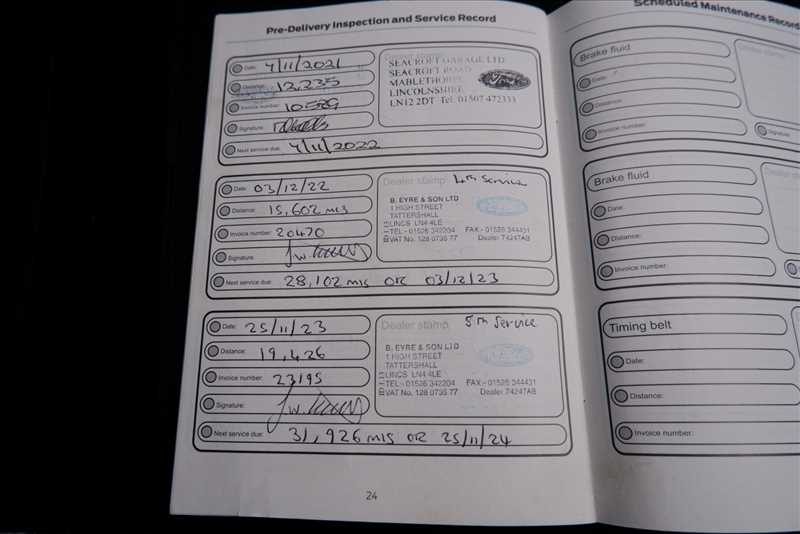 Pre-Delivery Inspection and Service Record
Date: 4/11/2021
Distance: 12,235
Invoice number:
Signature:
Next service due: 4/11/2022
SEACROFT GARAGE LTD
SEACROFT ROAD
MABLETHORPE
LINCOLNSHIRE
LN12 2DT Tel. 01507 472333
Ford
Date: 03/12/22
Distance: 15,602 mls
Invoice number: 20470
Signature:
Next service due: 28,102 mls OR 03/12/23
Dealer stamp 4th Service
B. EYRE & SON LTD
1 HIGH STREET
TATTERSHALL
LINCS LN4 4LE
TEL - 01526 342204 FAX - 01526 344431
VAT No. 128 0736 77 Dealer 74247AB
Date: 25/11/23
Distance: 19,426
Invoice number: 23195
Signature:
Next service due: 31,926 mls OR 25/11/24
Dealer stamp 5th Service
B. EYRE & SON LTD
1 HIGH STREET
TATTERSHALL
LINCS LN4 4LE
TEL - 01526 342204 FAX - 01526 344431
VAT No. 128 0736 77 Dealer 74247AB
24
Scheduled Maintenance Record
Brake fluid
Date:
Distance:
Invoice number:
Signature
Brake fluid
Date:
Distance:
Invoice number:
Timing belt
Date:
Distance:
Invoice number: